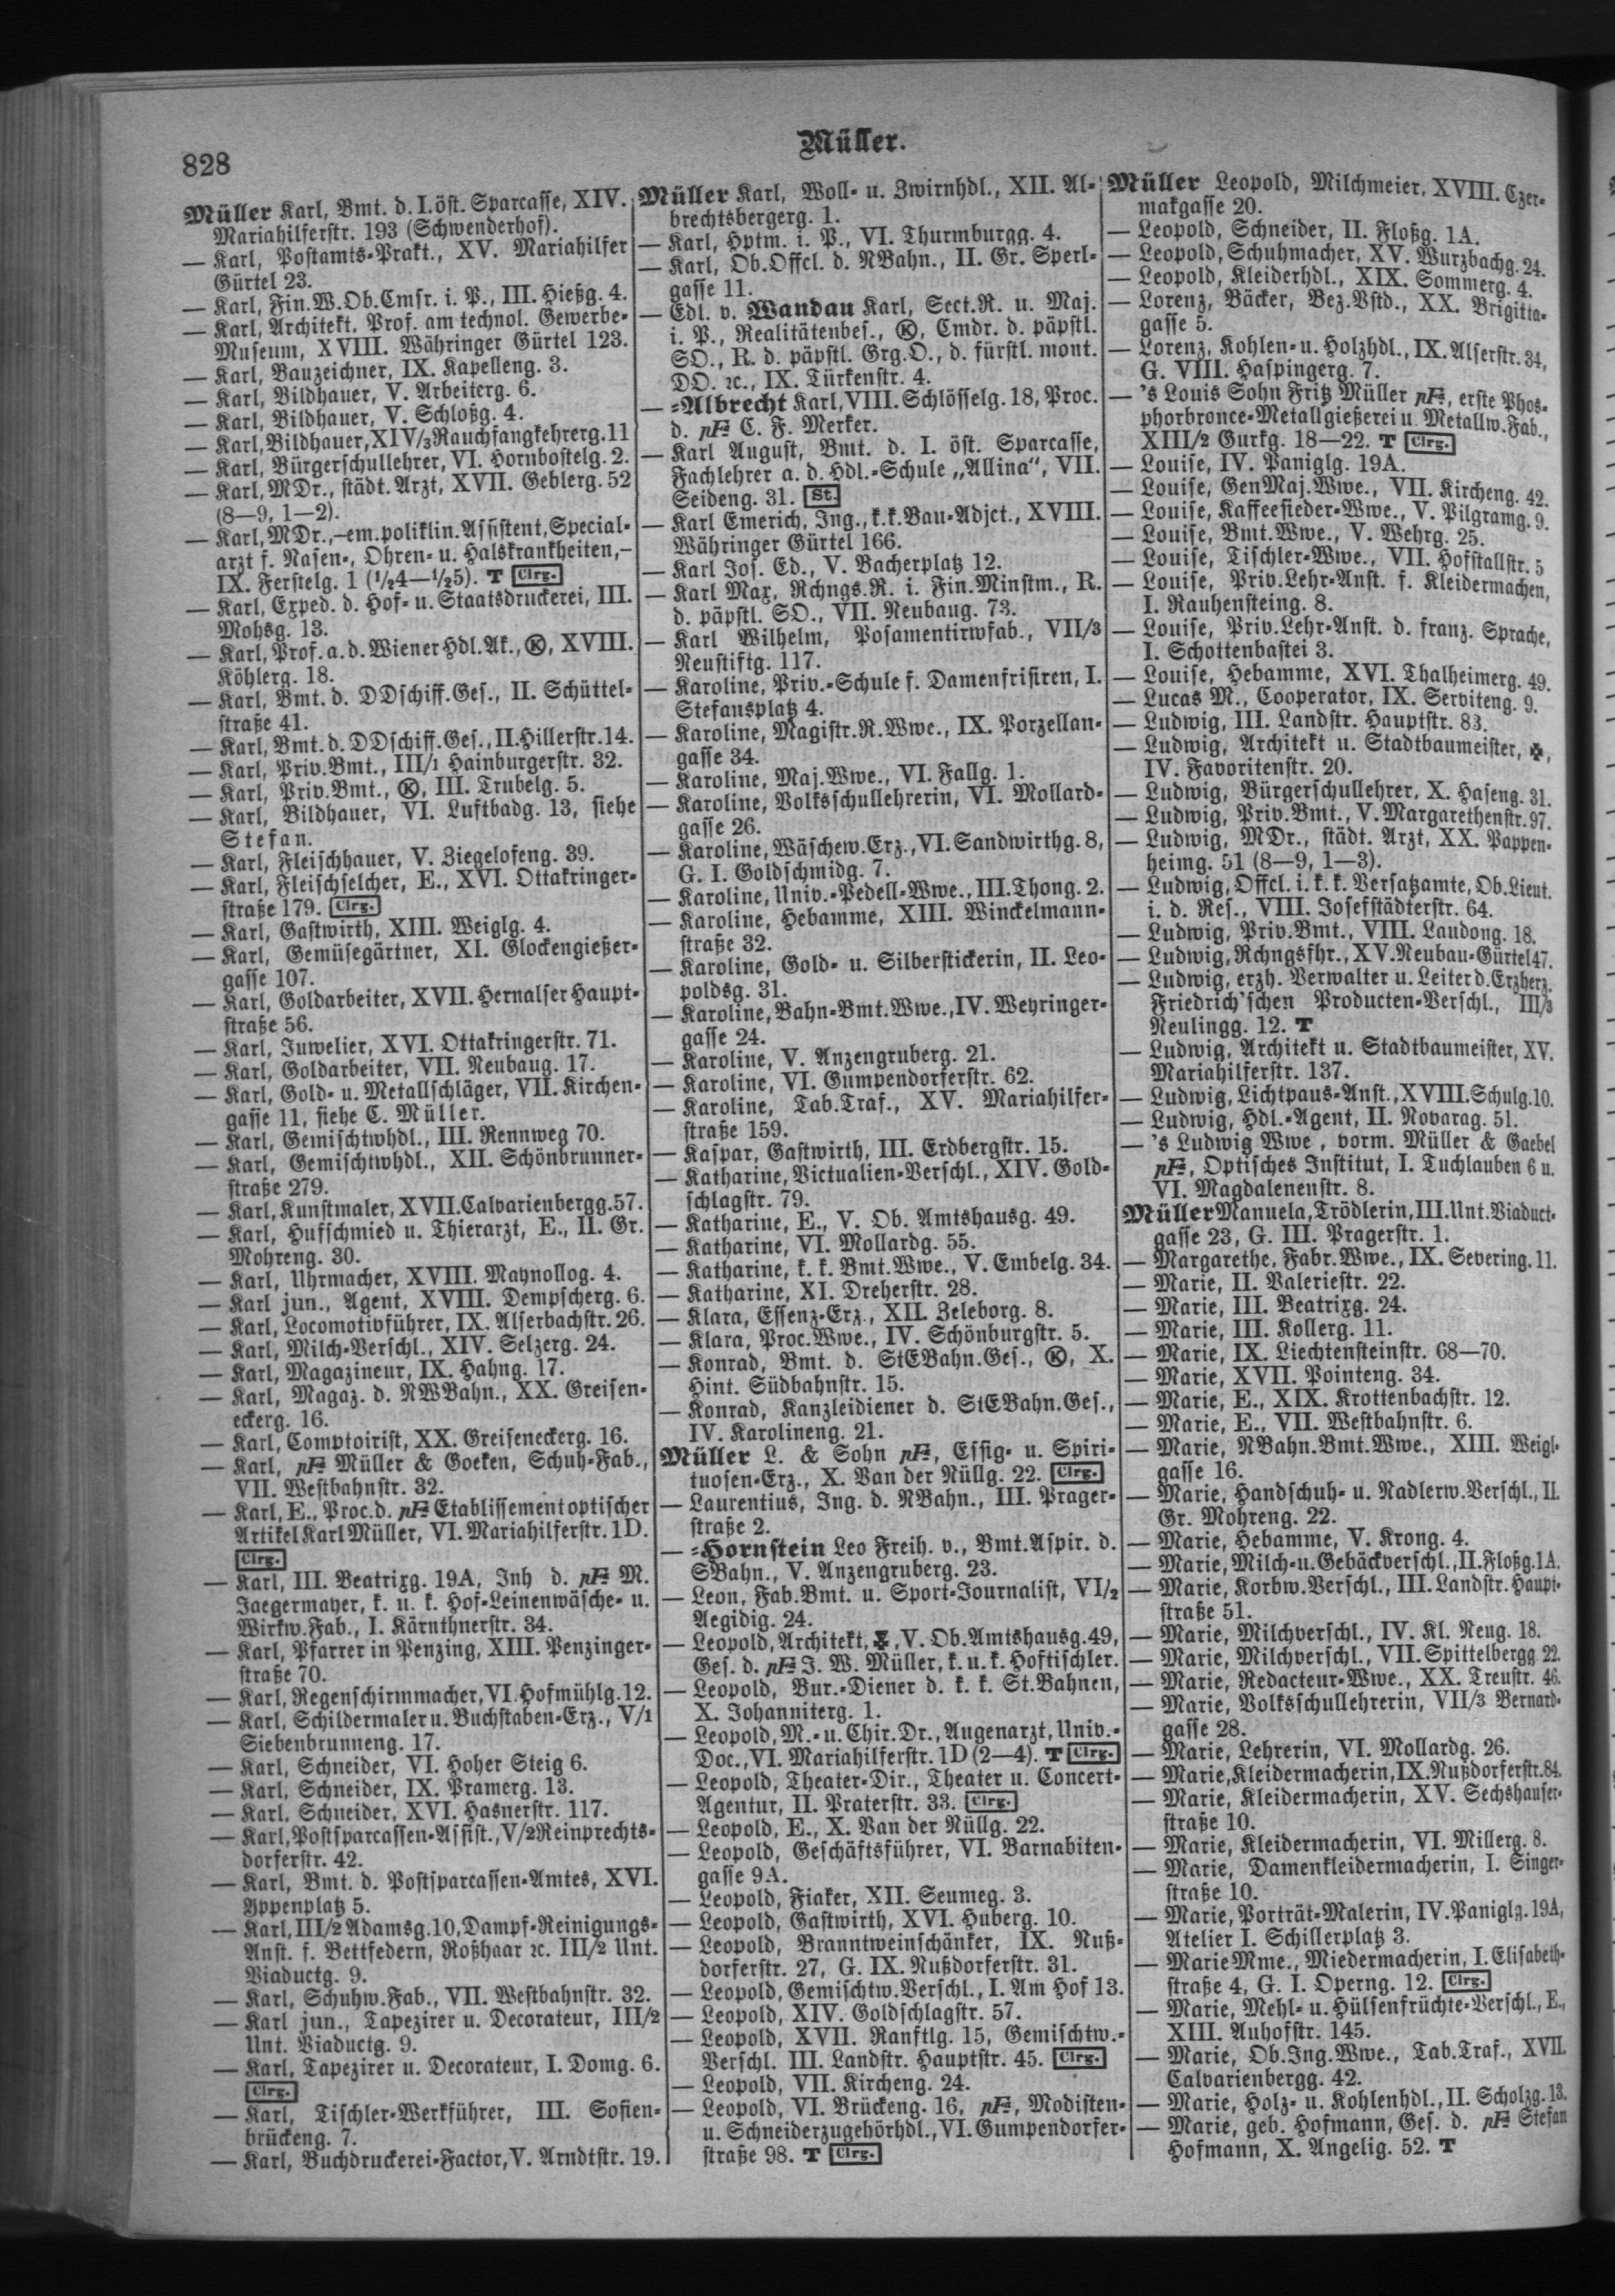 828
Müller.
Müller Karl, Bmt. d. I. öst. Sparcasse, XIV.
Mariahilferstr. 193 (Schwenderhof).
— Karl, Postamts-Prakt., XV. Mariahilfer
Gürtel 23.
— Karl, Fin.W.Ob.Cmsr. i. P., III. Hießg. 4.
— Karl, Architekt. Prof. am technol. Gewerbe-
Museum, XVIII. Währinger Gürtel 123.
— Karl, Bauzeichner, IX. Kapelleng. 3.
— Karl, Bildhauer, V. Arbeiterg. 6.
— Karl, Bildhauer, V. Schloßg. 4.
— Karl, Bildhauer, XIV/3 Rauchfangkehrerg. 11
— Karl, Bürgerschullehrer, VI. Hornbostelg. 2.
— Karl, MDr., städt. Arzt, XVII. Geblerg. 52
(8—9, 1—2).
— Karl, MDr., –em. poliklin. Assistent, Special-
arzt f. Nasen-, Ohren- u. Halskrankheiten,–
IX. Ferstelg. 1 (1/24—1/25). T Clrg.
— Karl, Exped. d. Hof- u. Staatsdruckerei, III.
Mohsg. 13.
— Karl, Prof. a. d. Wiener Hdl. Ak., Ⓚ, XVIII.
Köhlerg. 18.
— Karl, Bmt. d. DDschiff. Ges., II. Schüttel-
straße 41.
— Karl, Bmt. d. DDschiff. Ges., II. Hillerstr. 14.
— Karl, Priv. Bmt., III/1 Hainburgerstr. 32.
— Karl, Priv. Bmt., Ⓚ, III. Trubelg. 5.
— Karl, Bildhauer, VI. Luftbadg. 13, siehe
Stefan.
— Karl, Fleischhauer, V. Ziegelofeng. 39.
— Karl, Fleischselcher, E., XVI. Ottakringer-
straße 179. Clrg.
— Karl, Gastwirth, XIII. Weiglg. 4.
— Karl, Gemüsegärtner, XI. Glockengießer-
gasse 107.
— Karl, Goldarbeiter, XVII. Hernalser Haupt-
straße 56.
— Karl, Juwelier, XVI. Ottakringerstr. 71.
— Karl, Goldarbeiter, VII. Neubaug. 17.
— Karl, Gold- u. Metallschläger, VII. Kirchen-
gasse 11, siehe C. Müller.
— Karl, Gemischtwhdl., III. Rennweg 70.
— Karl, Gemischtwhdl., XII. Schönbrunner-
straße 279.
— Karl, Kunstmaler, XVII. Calvarienbergg. 57.
— Karl, Hufschmied u. Thierarzt, E., II. Gr.
Mohreng. 30.
— Karl, Uhrmacher, XVIII. Maynollog. 4.
— Karl jun., Agent, XVIII. Dempscherg. 6.
— Karl, Locomotivführer, IX. Alserbachstr. 26.
— Karl, Milch-Verschl., XIV. Selzerg. 24.
— Karl, Magazineur, IX. Hahng. 17.
— Karl, Magaz. d. NWBahn., XX. Greisen-
eckerg. 16.
— Karl, Comptoirist, XX. Greiseneckerg. 16.
— Karl, pF Müller & Goeken, Schuh-Fab.,
VII. Westbahnstr. 32.
— Karl, E., Proc. d. pF Etablissement optischer
Artikel Karl Müller, VI. Mariahilferstr. 1D.
Clrg.
— Karl, III. Beatrixg. 19A, Inh d. pF M.
Jaegermayer, k. u. k. Hof-Leinenwäsche- u.
Wirkw. Fab., I. Kärnthnerstr. 34.
— Karl, Pfarrer in Penzing, XIII. Penzinger-
straße 70.
— Karl, Regenschirmmacher, VI. Hofmühlg. 12.
— Karl, Schildermaler u. Buchstaben-Erz., V/1
Siebenbrunneng. 17.
— Karl, Schneider, VI. Hoher Steig 6.
— Karl, Schneider, IX. Pramerg. 13.
— Karl. Schneider, XVI. Hasnerstr. 117.
— Karl, Postsparcassen-Assist., V/2 Reinprechts-
dorferstr. 42.
— Karl, Bmt. d. Postsparcassen-Amtes, XVI.
Yppenplatz 5.
— Karl, III/2 Adamsg. 10, Dampf-Reinigungs-
Anst. f. Bettfedern, Roßhaar ꝛc. III/2 Unt.
Viaductg. 9.
— Karl, Schuhw. Fab., VII. Westbahnstr. 32.
— Karl jun., Tapezirer u. Decorateur, III/2
Unt. Viaductg. 9.
— Karl, Tapezirer u. Decorateur, I. Domg. 6.
Clrg.
— Karl, Tischler-Werkführer, III. Sofien-
brückeng. 7.
— Karl, Buchdruckerei-Factor, V. Arndtstr. 19.
Müller Karl, Woll- u. Zwirnhdl., XII. Al-
brechtsbergerg. 1.
— Karl, Hptm. i. P., VI. Thurmburgg. 4.
— Karl, Ob. Offcl. d. NBahn., II. Gr. Sperl-
gasse 11.
— Edl. v. Wandau Karl, Sect.R. u. Maj.
i. P., Realitätenbes., Ⓚ, Cmdr. d. päpstl.
SO., R. d. päpstl. Grg.O., d. fürstl. mont.
DO. ꝛc., IX. Türkenstr. 4.
— -Albrecht Karl, VIII. Schlösselg. 18, Proc.
d. pF C. F. Merker.
— Karl August, Bmt. d. I. öst. Sparcasse,
Fachlehrer a. d. Hdl.-Schule „Allina“, VII.
Seideng. 31. St.
— Karl Emerich, Ing., k. k. Bau-Adjct., XVIII.
Währinger Gürtel 166.
— Karl Jos. Ed., V. Bacherplatz 12.
— Karl Max, Rchngs.R. i. Fin.Minstm., R.
d. päpstl. SO., VII. Neubaug. 73.
— Karl Wilhelm, Posamentirwfab., VII/3
Neustiftg. 117.
— Karoline, Priv.-Schule f. Damenfrisiren, I.
Stefansplatz 4.
— Karoline, Magistr.R.Wwe., IX. Porzellan-
gasse 34.
— Karoline, Maj.Wwe., VI. Fallg. 1.
— Karoline, Volksschullehrerin, VI. Mollard-
gasse 26.
— Karoline, Wäschew.Erz., VI. Sandwirthg. 8,
G. I. Goldschmidg. 7.
— Karoline, Univ.-Pedell-Wwe., III. Thong. 2.
— Karoline, Hebamme, XIII. Winckelmann-
straße 32.
— Karoline, Gold- u. Silberstickerin, II. Leo-
poldsg. 31.
— Karoline, Bahn-Bmt.Wwe., IV. Weyringer-
gasse 24.
— Karoline, V. Anzengruberg. 21.
— Karoline, VI. Gumpendorferstr. 62.
— Karoline, Tab.Traf., XV. Mariahilfer-
straße 159.
— Kaspar, Gastwirth, III. Erdbergstr. 15.
— Katharine, Victualien-Verschl., XIV. Gold-
schlagstr. 79.
— Katharine, E., V. Ob. Amtshausg. 49.
— Katharine, VI. Mollardg. 55.
— Katharine, k. k. Bmt.Wwe., V. Embelg. 34.
— Katharine, XI. Dreherstr. 28.
— Klara, Essenz-Erz., XII. Zeleborg. 8.
— Klara, Proc.Wwe., IV. Schönburgstr. 5.
— Konrad, Bmt. d. StEBahn.Ges., Ⓚ, X.
Hint. Südbahnstr. 15.
— Konrad, Kanzleidiener d. StEBahn.Ges.,
IV. Karolineng. 21.
Müller L. & Sohn pF, Essig- u. Spiri-
tuosen-Erz., X. Van der Nüllg. 22. Clrg.
— Laurentius, Ing. d. NBahn., III. Prager-
straße 2.
— -Hornstein Leo Freih. v., Bmt.Aspir. d.
SBahn., V. Anzengruberg. 23.
— Leon, Fab.Bmt. u. Sport-Journalist, VI/2
Aegidig. 24.
— Leopold, Architekt, , V. Ob. Amtshausg. 49,
Ges. d. pF J. W. Müller, k. u. k. Hoftischler.
— Leopold, Bur.-Diener d. k. k. St.Bahnen,
X. Johanniterg. 1.
— Leopold, M.- u. Chir.Dr., Augenarzt, Univ.-
Doc., VI. Mariahilferstr. 1D (2—4). T Clrg.
— Leopold, Theater-Dir., Theater u. Concert-
Agentur, II. Praterstr. 33. Clrg.
— Leopold, E., X. Van der Nüllg. 22.
— Leopold, Geschäftsführer, VI. Barnabiten-
gasse 9A.
— Leopold, Fiaker, XII. Seumeg. 3.
— Leopold, Gastwirth, XVI. Huberg. 10.
— Leopold, Branntweinschänker, IX. Nuß-
dorferstr. 27, G. IX. Nußdorferstr. 31.
— Leopold, Gemischtw.Verschl., I. Am Hof 13.
— Leopold, XIV. Goldschlagstr. 57.
— Leopold, XVII. Ranftlg. 15, Gemischtw.-
Verschl. III. Landstr. Hauptstr. 45. Clrg.
— Leopold, VII. Kircheng. 24.
— Leopold, VI. Brückeng. 16, pF, Modisten-
u. Schneiderzugehörhdl., VI. Gumpendorfer-
straße 98. T Clrg.
Müller Leopold, Milchmeier, XVIII. Czer-
makgasse 20.
— Leopold, Schneider, II. Floßg. 1A.
— Leopold, Schuhmacher, XV. Wurzbachg. 24.
— Leopold, Kleiderhdl., XIX. Sommerg. 4.
— Lorenz, Bäcker, Bez.Vstd., XX. Brigitta-
gasse 5.
— Lorenz, Kohlen- u. Holzhdl., IX. Alserstr. 34,
G. VIII. Haspingerg. 7.
— 's Louis Sohn Fritz Müller pF, erste Phos-
phorbronce-Metallgießerei u. Metallw. Fab.,
XIII/2 Gurkg. 18—22. T Clrg.
— Louise, IV. Paniglg. 19A.
— Louise, GenMaj.Wwe., VII. Kircheng. 42.
— Louise, Kaffeesieder-Wwe., V. Pilgramg. 9.
— Louise, Bmt.Wwe., V. Wehrg. 25.
— Louise, Tischler-Wwe., VII. Hofstallstr. 5
— Louise, Priv.Lehr-Anst. f. Kleidermachen,
I. Rauhensteing. 8.
— Louise, Priv.Lehr-Anst. d. franz. Sprache,
I. Schottenbastei 3.
— Louise, Hebamme, XVI. Thalheimerg. 49.
— Lucas M., Cooperator, IX. Serviteng. 9.
— Ludwig, III. Landstr. Hauptstr. 83.
— Ludwig, Architekt u. Stadtbaumeister, ,
IV. Favoritenstr. 20.
— Ludwig, Bürgerschullehrer, X. Haseng. 31.
— Ludwig, Priv.Bmt., V. Margarethenstr. 97.
— Ludwig, MDr., städt. Arzt, XX. Pappen-
heimg. 51 (8—9, 1—3).
— Ludwig, Offcl. i. k. k. Versatzamte, Ob.Lieut.
i. d. Res., VIII. Josefstädterstr. 64.
— Ludwig, Priv.Bmt., VIII. Laudong. 18.
— Ludwig, Rchngsfhr., XV. Neubau-Gürtel 47.
— Ludwig, erzh. Verwalter u. Leiter d. Erzherz.
Friedrich'schen Producten-Verschl., III/3
Neulingg. 12. T
— Ludwig, Architekt u. Stadtbaumeister, XV.
Mariahilferstr. 137.
— Ludwig, Lichtpaus-Anst., XVIII. Schulg. 10.
— Ludwig, Hdl.-Agent, II. Novarag. 51.
— 's Ludwig Wwe, vorm. Müller & Gaebel
pF, Optisches Institut, I. Tuchlauben 6 u.
VI. Magdalenenstr. 8.
Müller Manuela, Trödlerin, III. Unt. Viaduct-
gasse 23, G. III. Pragerstr. 1.
— Margarethe, Fabr.Wwe., IX. Severing. 11.
— Marie, II. Valeriestr. 22.
— Marie, III. Beatrixg. 24.
— Marie, III. Kollerg. 11.
— Marie, IX. Liechtensteinstr. 68—70.
— Marie, XVII. Pointeng. 34.
— Marie, E., XIX. Krottenbachstr. 12.
— Marie, E., VII. Westbahnstr. 6.
— Marie, NBahn.Bmt.Wwe., XIII. Weigl-
gasse 16.
— Marie, Handschuh- u. Nadlerw.Verschl., II.
Gr. Mohreng. 22.
— Marie, Hebamme, V. Krong. 4.
— Marie, Milch- u. Gebäckverschl., II. Floßg. 1A.
— Marie, Korbw.Verschl., III. Landstr. Haupt-
straße 51.
— Marie, Milchverschl., IV. Kl. Neug. 18.
— Marie, Milchverschl., VII. Spittelbergg. 22.
— Marie, Redacteur-Wwe., XX. Treustr. 46.
— Marie, Volksschullehrerin, VII/3 Bernard-
gasse 28.
— Marie, Lehrerin, VI. Mollardg. 26.
— Marie, Kleidermacherin, IX. Nußdorferstr. 84.
— Marie, Kleidermacherin, XV. Sechshauser-
straße 10.
— Marie, Kleidermacherin, VI. Millerg. 8.
— Marie, Damenkleidermacherin, I. Singer-
straße 10.
— Marie, Porträt-Malerin, IV. Paniglg. 19A,
Atelier I. Schillerplatz 3.
— Marie Mme., Miedermacherin, I. Elisabeth-
straße 4, G. I. Operng. 12. Clrg.
— Marie, Mehl- u. Hülsenfrüchte-Verschl., E.,
XIII. Auhofstr. 145.
— Marie, Ob.Ing.Wwe., Tab.Traf., XVII.
Calvarienbergg. 42.
— Marie, Holz- u. Kohlenhdl., II. Scholzg. 13.
— Marie, geb. Hofmann, Ges. d. pF Stefan
Hofmann, X. Angelig. 52. T